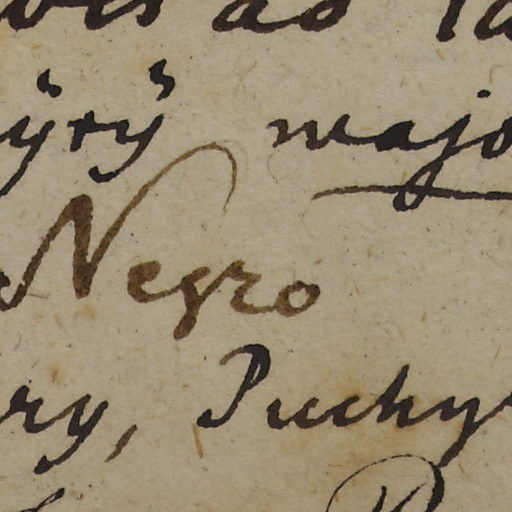 ÿrÿ majo
Negro
ry, Puchy